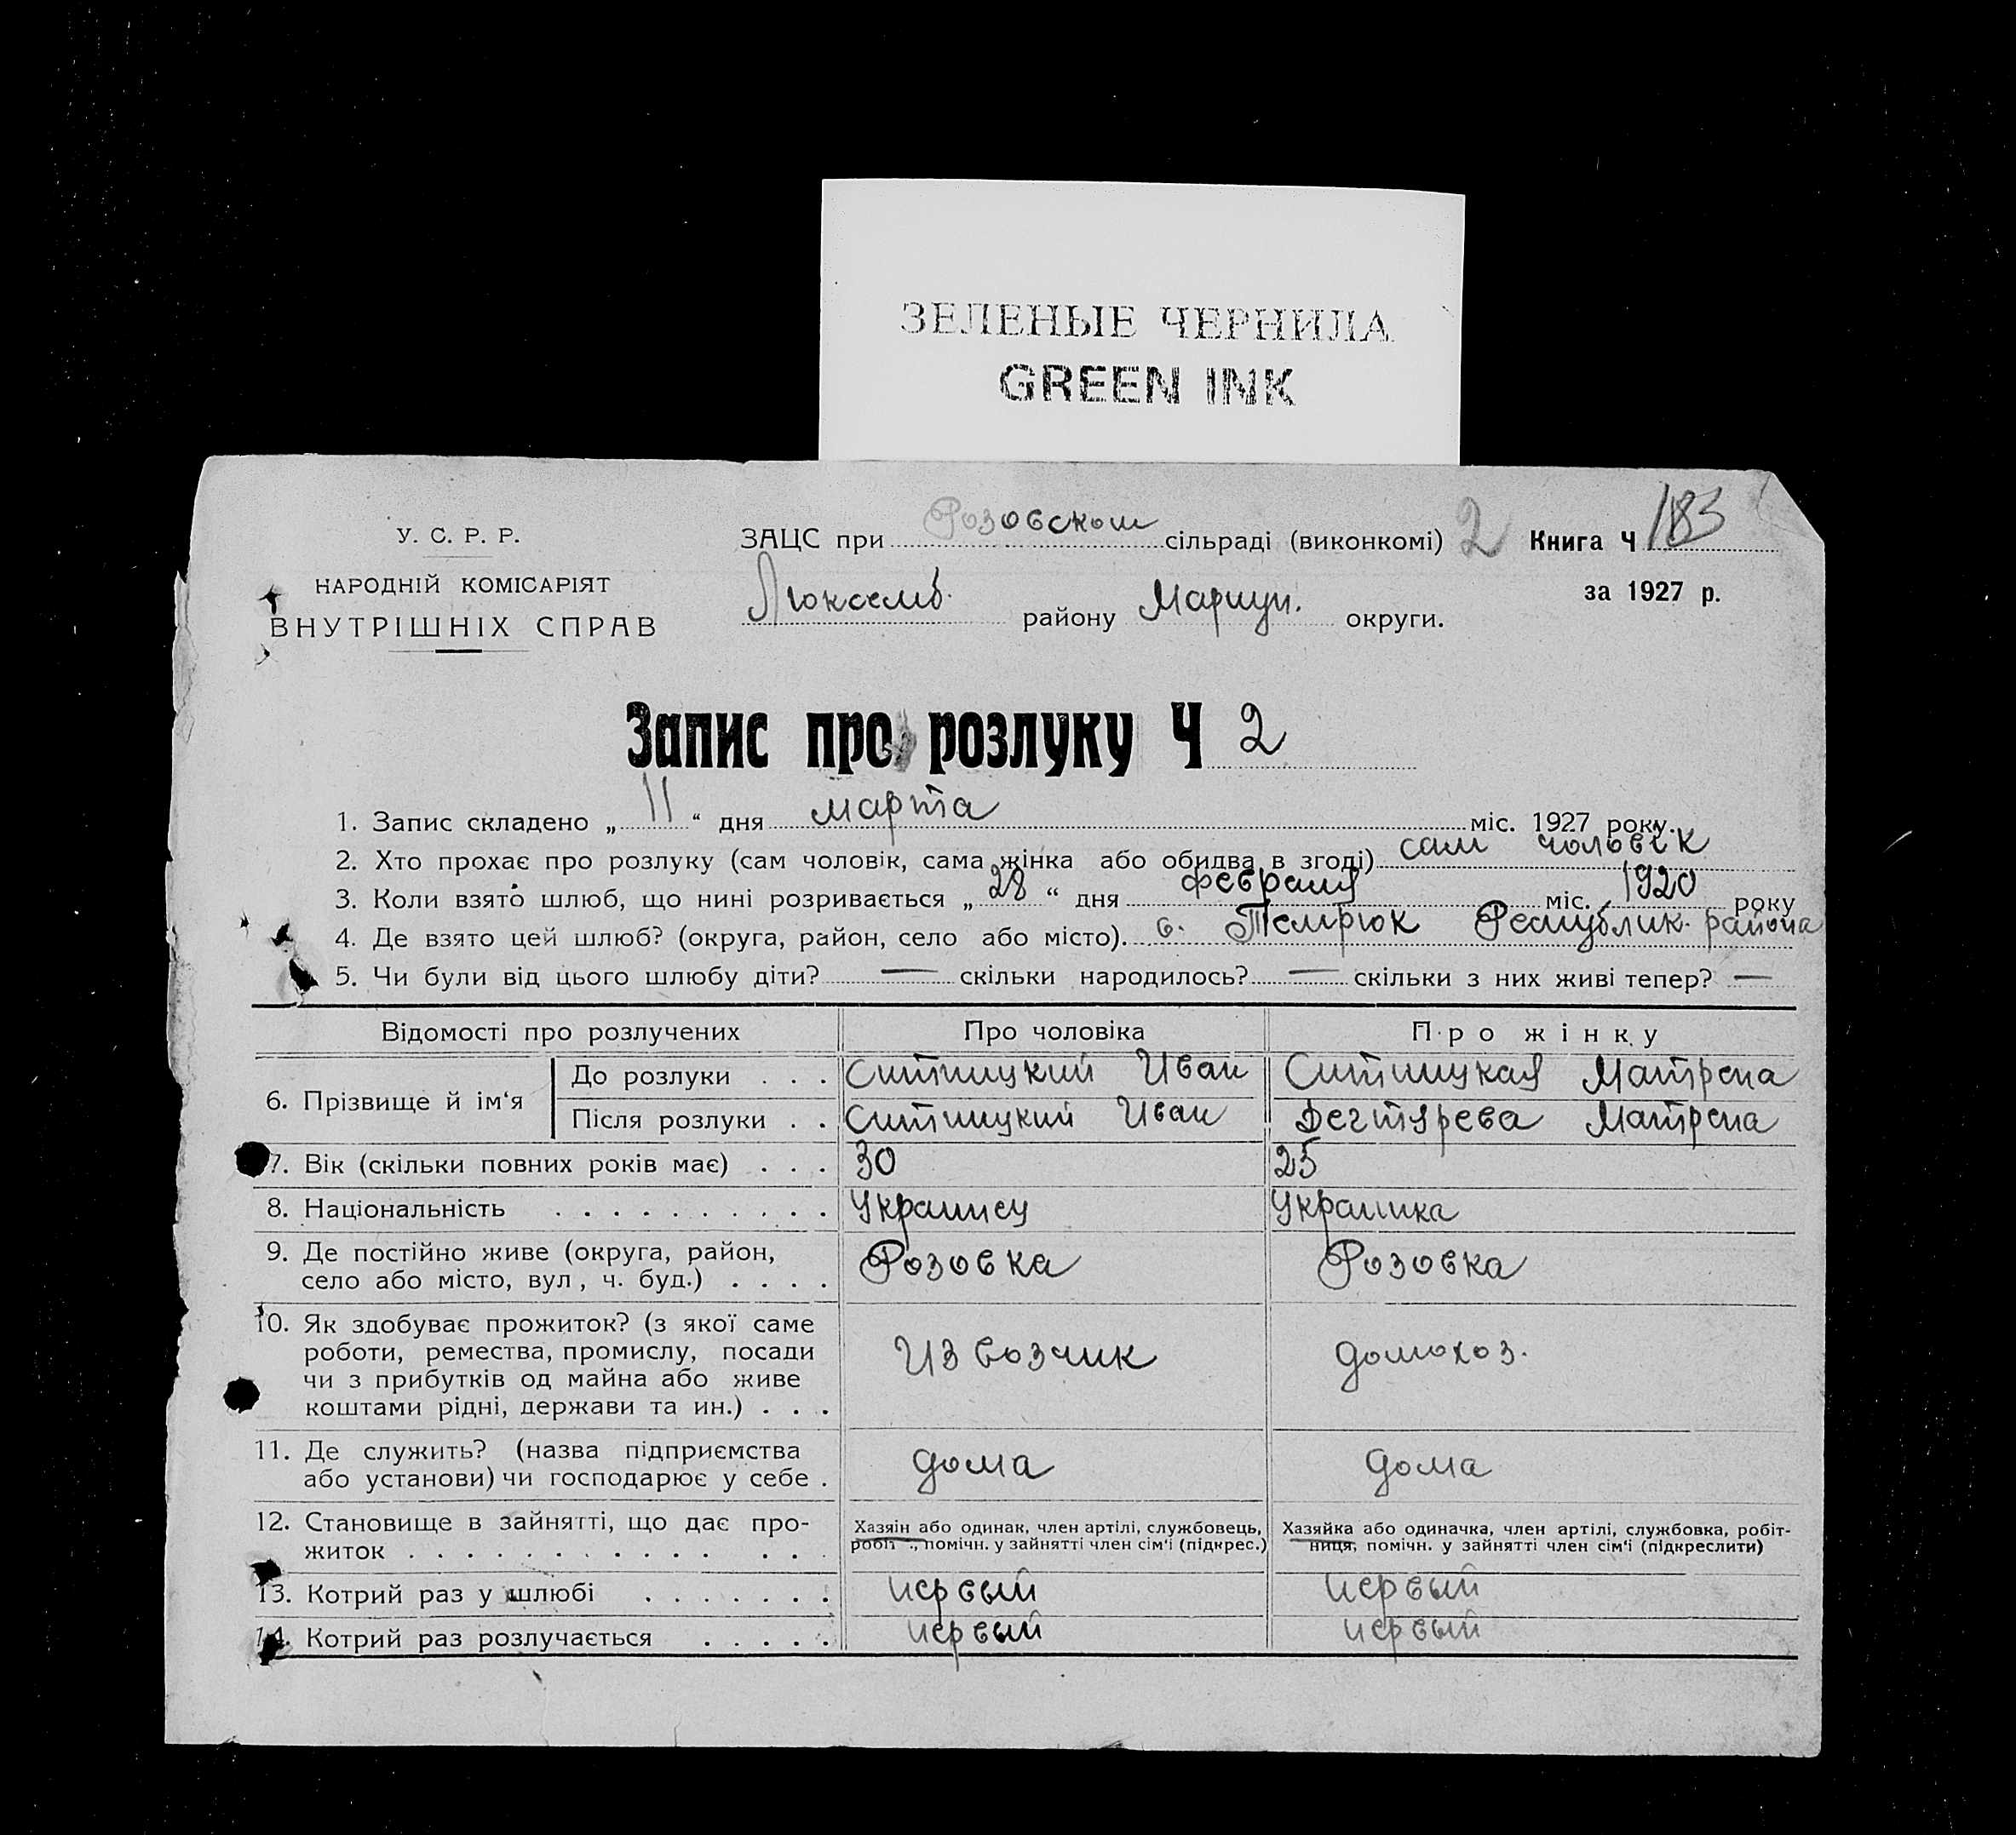 ЗЕЛЕНЫЕ ЧЕРНИЛА
GREEN INK
У. С. Р. Р.
НАРОДНІЙ КОМІСАРІЯТ
ВНУТРІШНІХ СПРАВ
ЗАЦС при Розовском сільраді (виконкомі) 2 Книга Ч 183
Люксемб. району Мариуп. округи.
за 1927 р.
Запис про розлуку Ч 2
1. Запис складено „ 11 “ дня марта міс. 1927 року.
2. Хто прохає про розлуку (сам чоловік, сама жінка або обидва в згоді) сам чоловік
3. Коли взято шлюб, що нині розривається „ 28 “ дня февраля міс. 1920 року
4. Де взято цей шлюб? (округа, район, село або місто). с. Темрюк Республик. района
5. Чи були від цього шлюбу діти? — скільки народилось? — скільки з них живі тепер? —
Відомості про розлучених Про чоловіка Про жінку
6. Прізвище й ім‘я
До розлуки . . . Ситницкий Иван Ситницкая Матрена
Після розлуки . . Ситницкий Иван Дегтярева Матрена
7. Вік (скільки повних років має) . . . 30 25
8. Національність . . . . . . . . . . Украинец Украинка
9. Де постійно живе (округа, район,
село або місто, вул, ч. буд.) . . . . Розовка Розовка
10. Як здобуває прожиток? (з якої саме
роботи, ремества, промислу, посади
чи з прибутків од майна або живе
коштами рідні, держави та ин.) . . . Извозчик домохоз.
11. Де служить? (назва підприємства
або установи) чи господарює у себе . дома дома
12. Становище в зайнятті, що дає про-
житок . . . . . . . . . . . . .
Хазяін або одинак, член артілі, службовець,
робіт ., помічн. у зайнятті член сім‘і (підкрес.)
Хазяйка або одиначка, член артілі, службовка, робіт-
ниця, помічн. у зайнятті член сім‘і (підкреслити)
13. Котрий раз у шлюбі . . . . . . . первый первый
14. Котрий раз розлучається . . . . . первый первый